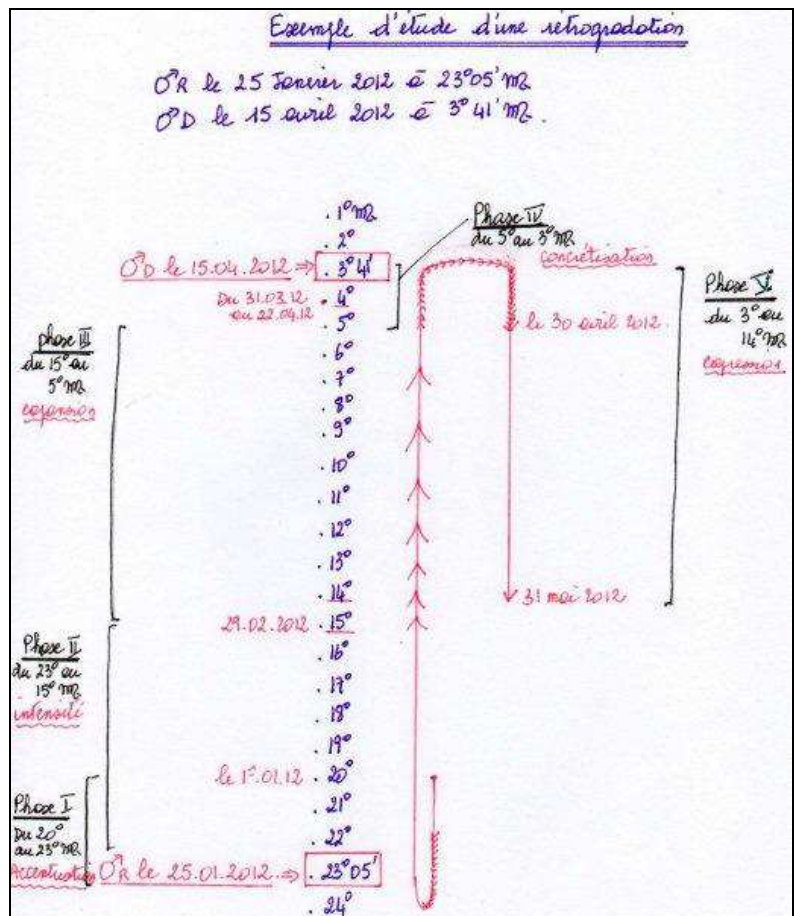 Exemple d'étude d'une rétrogradation
♂R le 25 Janvier 2012 à 23°05' ♍
♂D le 15 avril 2012 à 3°41' ♍.
. 1° ♍
. 2°
♂D le 15.04.2012 ⇒ . 3°41'
Du 31.03.12 au 22.04.12
. 4°
. 5°
. 6°
. 7°
. 8°
. 9°
. 10°
. 11°
. 12°
. 13°
. 14°
29.02.2012 . 15°
. 16°
. 17°
. 18°
. 19°
le 1°.01.12 . 20°
. 21°
. 22°
♂R le 25.01.2012 ⇒ . 23°05'
. 24°
Phase IV
du 5° au 3° ♍
concrétisation
le 30 avril 2012
31 mai 2012
Phase V
du 3° au
14° ♍
phase III
du 15° au
5° ♍
expansion
Phase II
du 23° au
15° ♍
intensité
Phase I
Du 20°
au 23° ♍
Accentuation